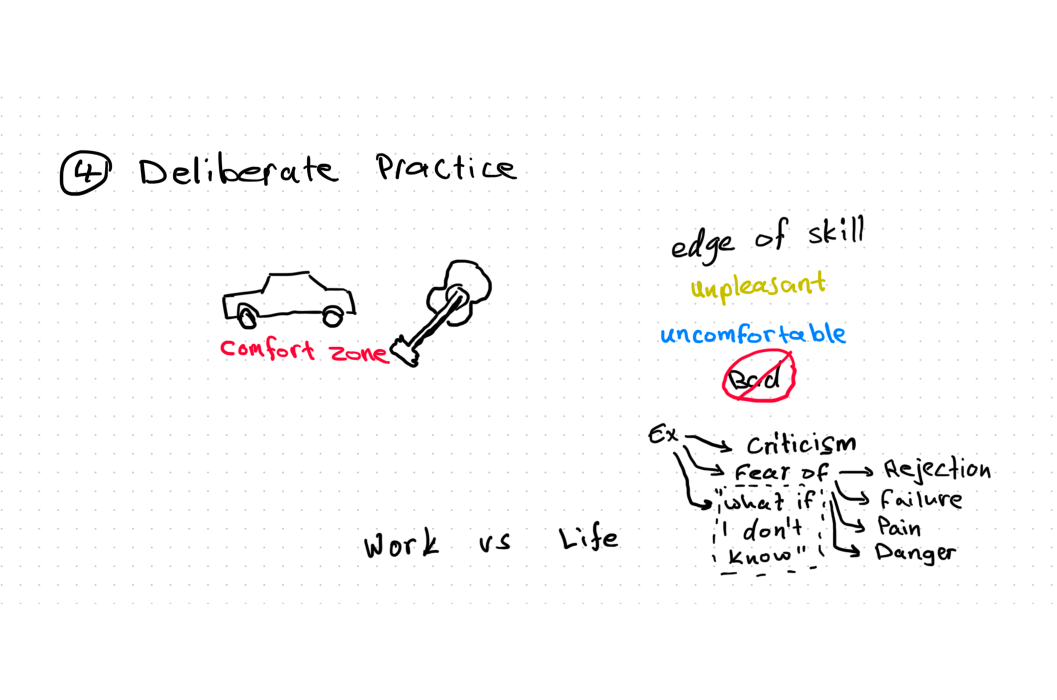 4 Deliberate Practice
comfort zone
edge of skill
unpleasant
uncomfortable
Bad
Ex
Criticism
Fear of
Rejection
Failure
Pain
Danger
"what if
I don't
know"
Work vs Life